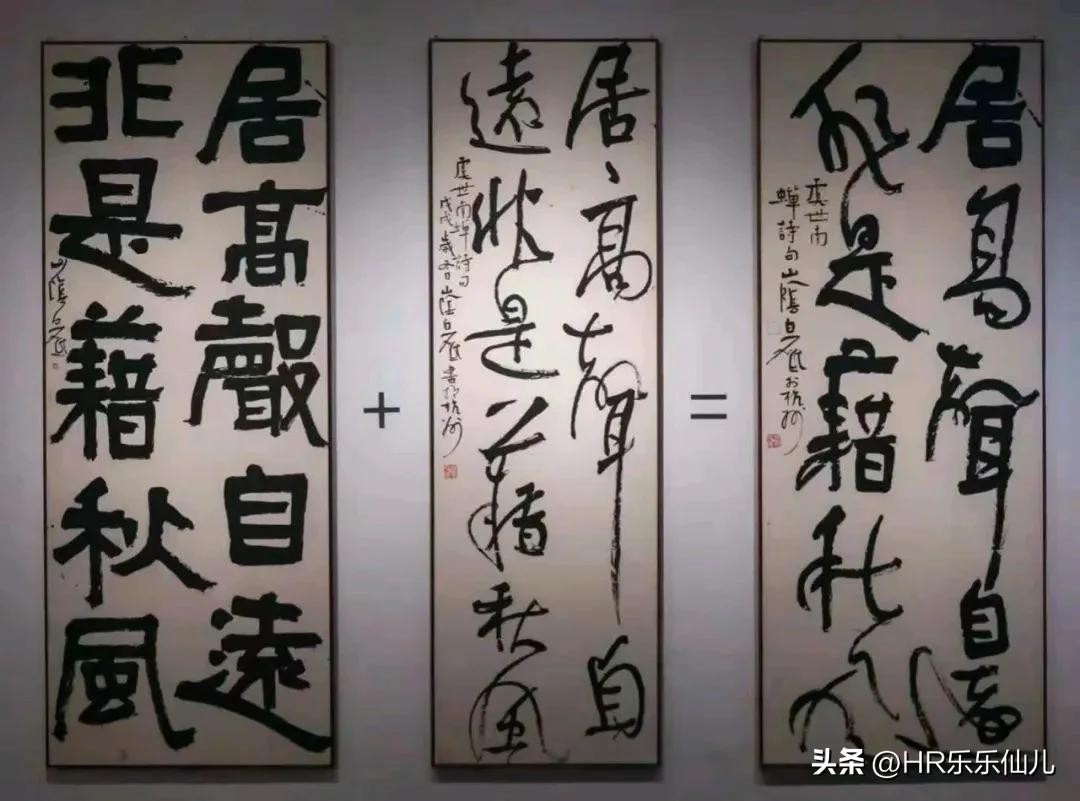 居高聲自遠
非是藉秋風
山陰白砥
+
居高聲自
遠非是藉秋風
虞世南蟬詩句
戊戌歲 山陰白砥書於杭州
=
居高聲自遠
非是藉秋風
虞世南
蟬詩句山陰白砥於杭州
头条 @HR乐乐仙儿